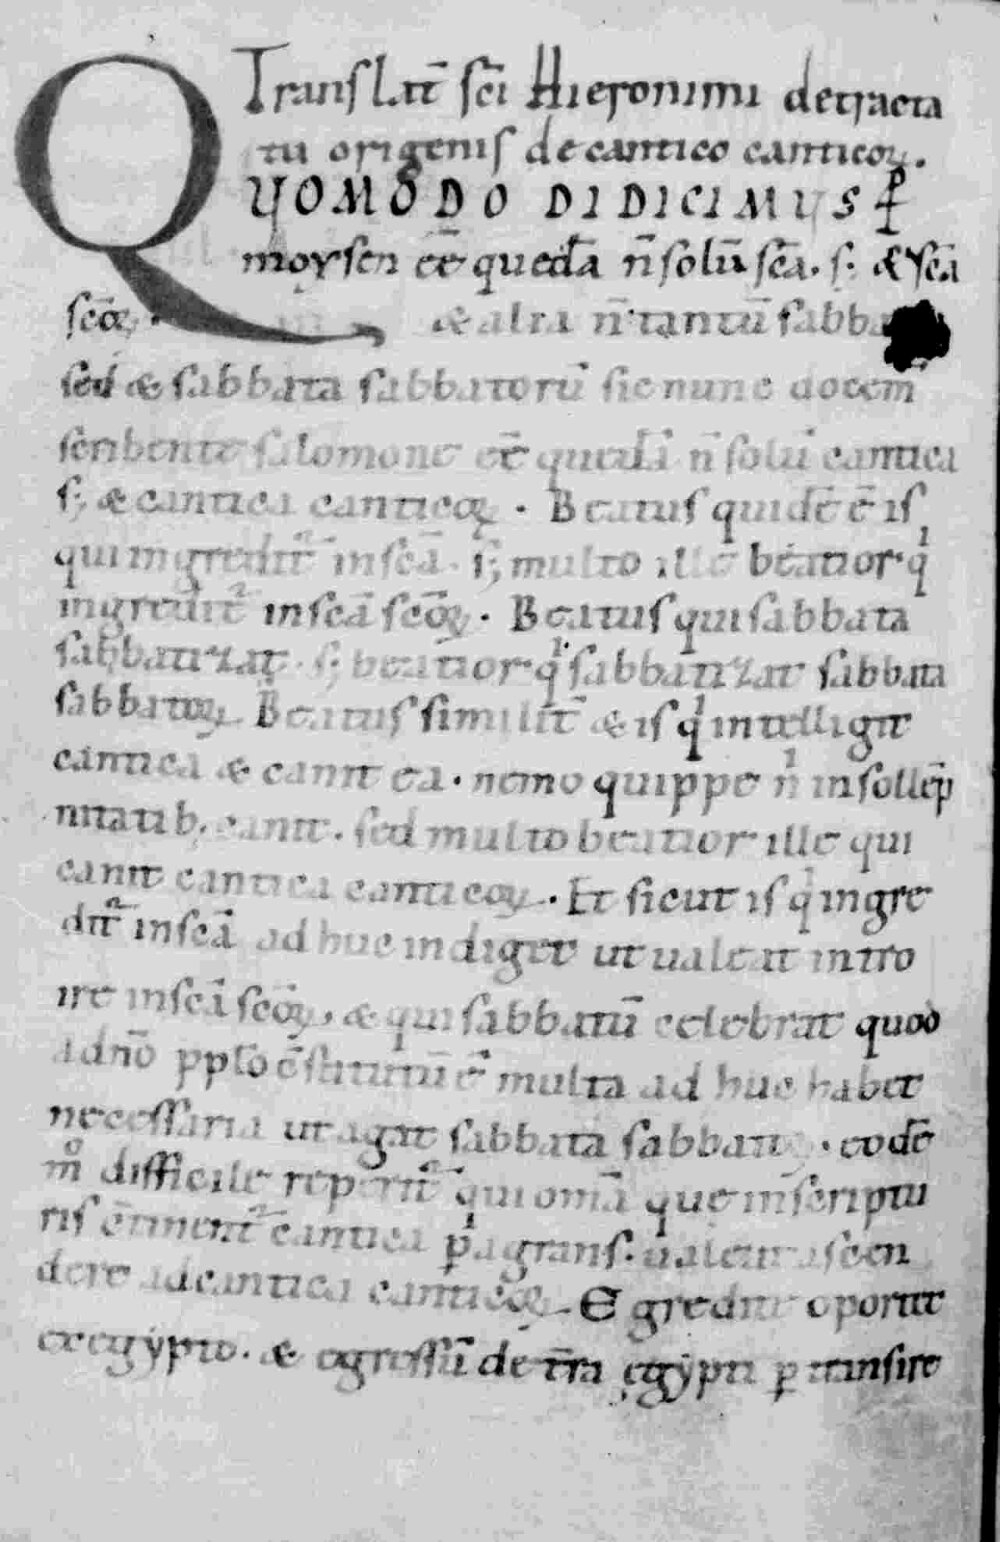 Translat̄ sc̄i Hieronimi detracta
tu origenis de cantico canticoꝝ.
QUOMODO DIDICIMUS P̱
moysen eē̄ quedā n̄ solū sc̄a. s; & sc̄a
sc̄oꝝ. & alia n̄ tantū sabba
sed & sabbata sabbatorū sic nunc docem̄
scribente salomone eē̄ quedā n̄ solū cantica
s; & cantica canticoꝝ. Beatus quidē ē is
qui ingredit̄ in sc̄a. s; multo ille beatior q̇
ingredit̄ in sc̄a sc̄oꝝ. Beatus qui sabbata
sabbatizat. s; beatior q̇ sabbatizat sabbata
sabbatoꝝ. Beatus similit̄ & is q̇ intelligit
cantica & canit ea. nemo quippe n̍ in sollēp
nitatib; canit. sed multo beatior ille qui
canit cantica canticoꝝ. Et sicut is q̇ ingre
dit̄ in sc̄a ad huc indiget ut ualeat intro
ire in sc̄a sc̄oꝝ, & qui sabbatū celebrat quod
adn̄o pplo c̄stitutū ē multa ad huc habet
necessaria ut agat sabbata eodē
m̊ difficile reperit̄ qui om̄ia que in scriptu
ris c̄tinent̄ cantica ꝑagrans. ualeat ascen
dere ad cantica canticoꝝ. Egredi te oportet
ex egypto. & egressū de tr̄a ęgypti ꝑtransire